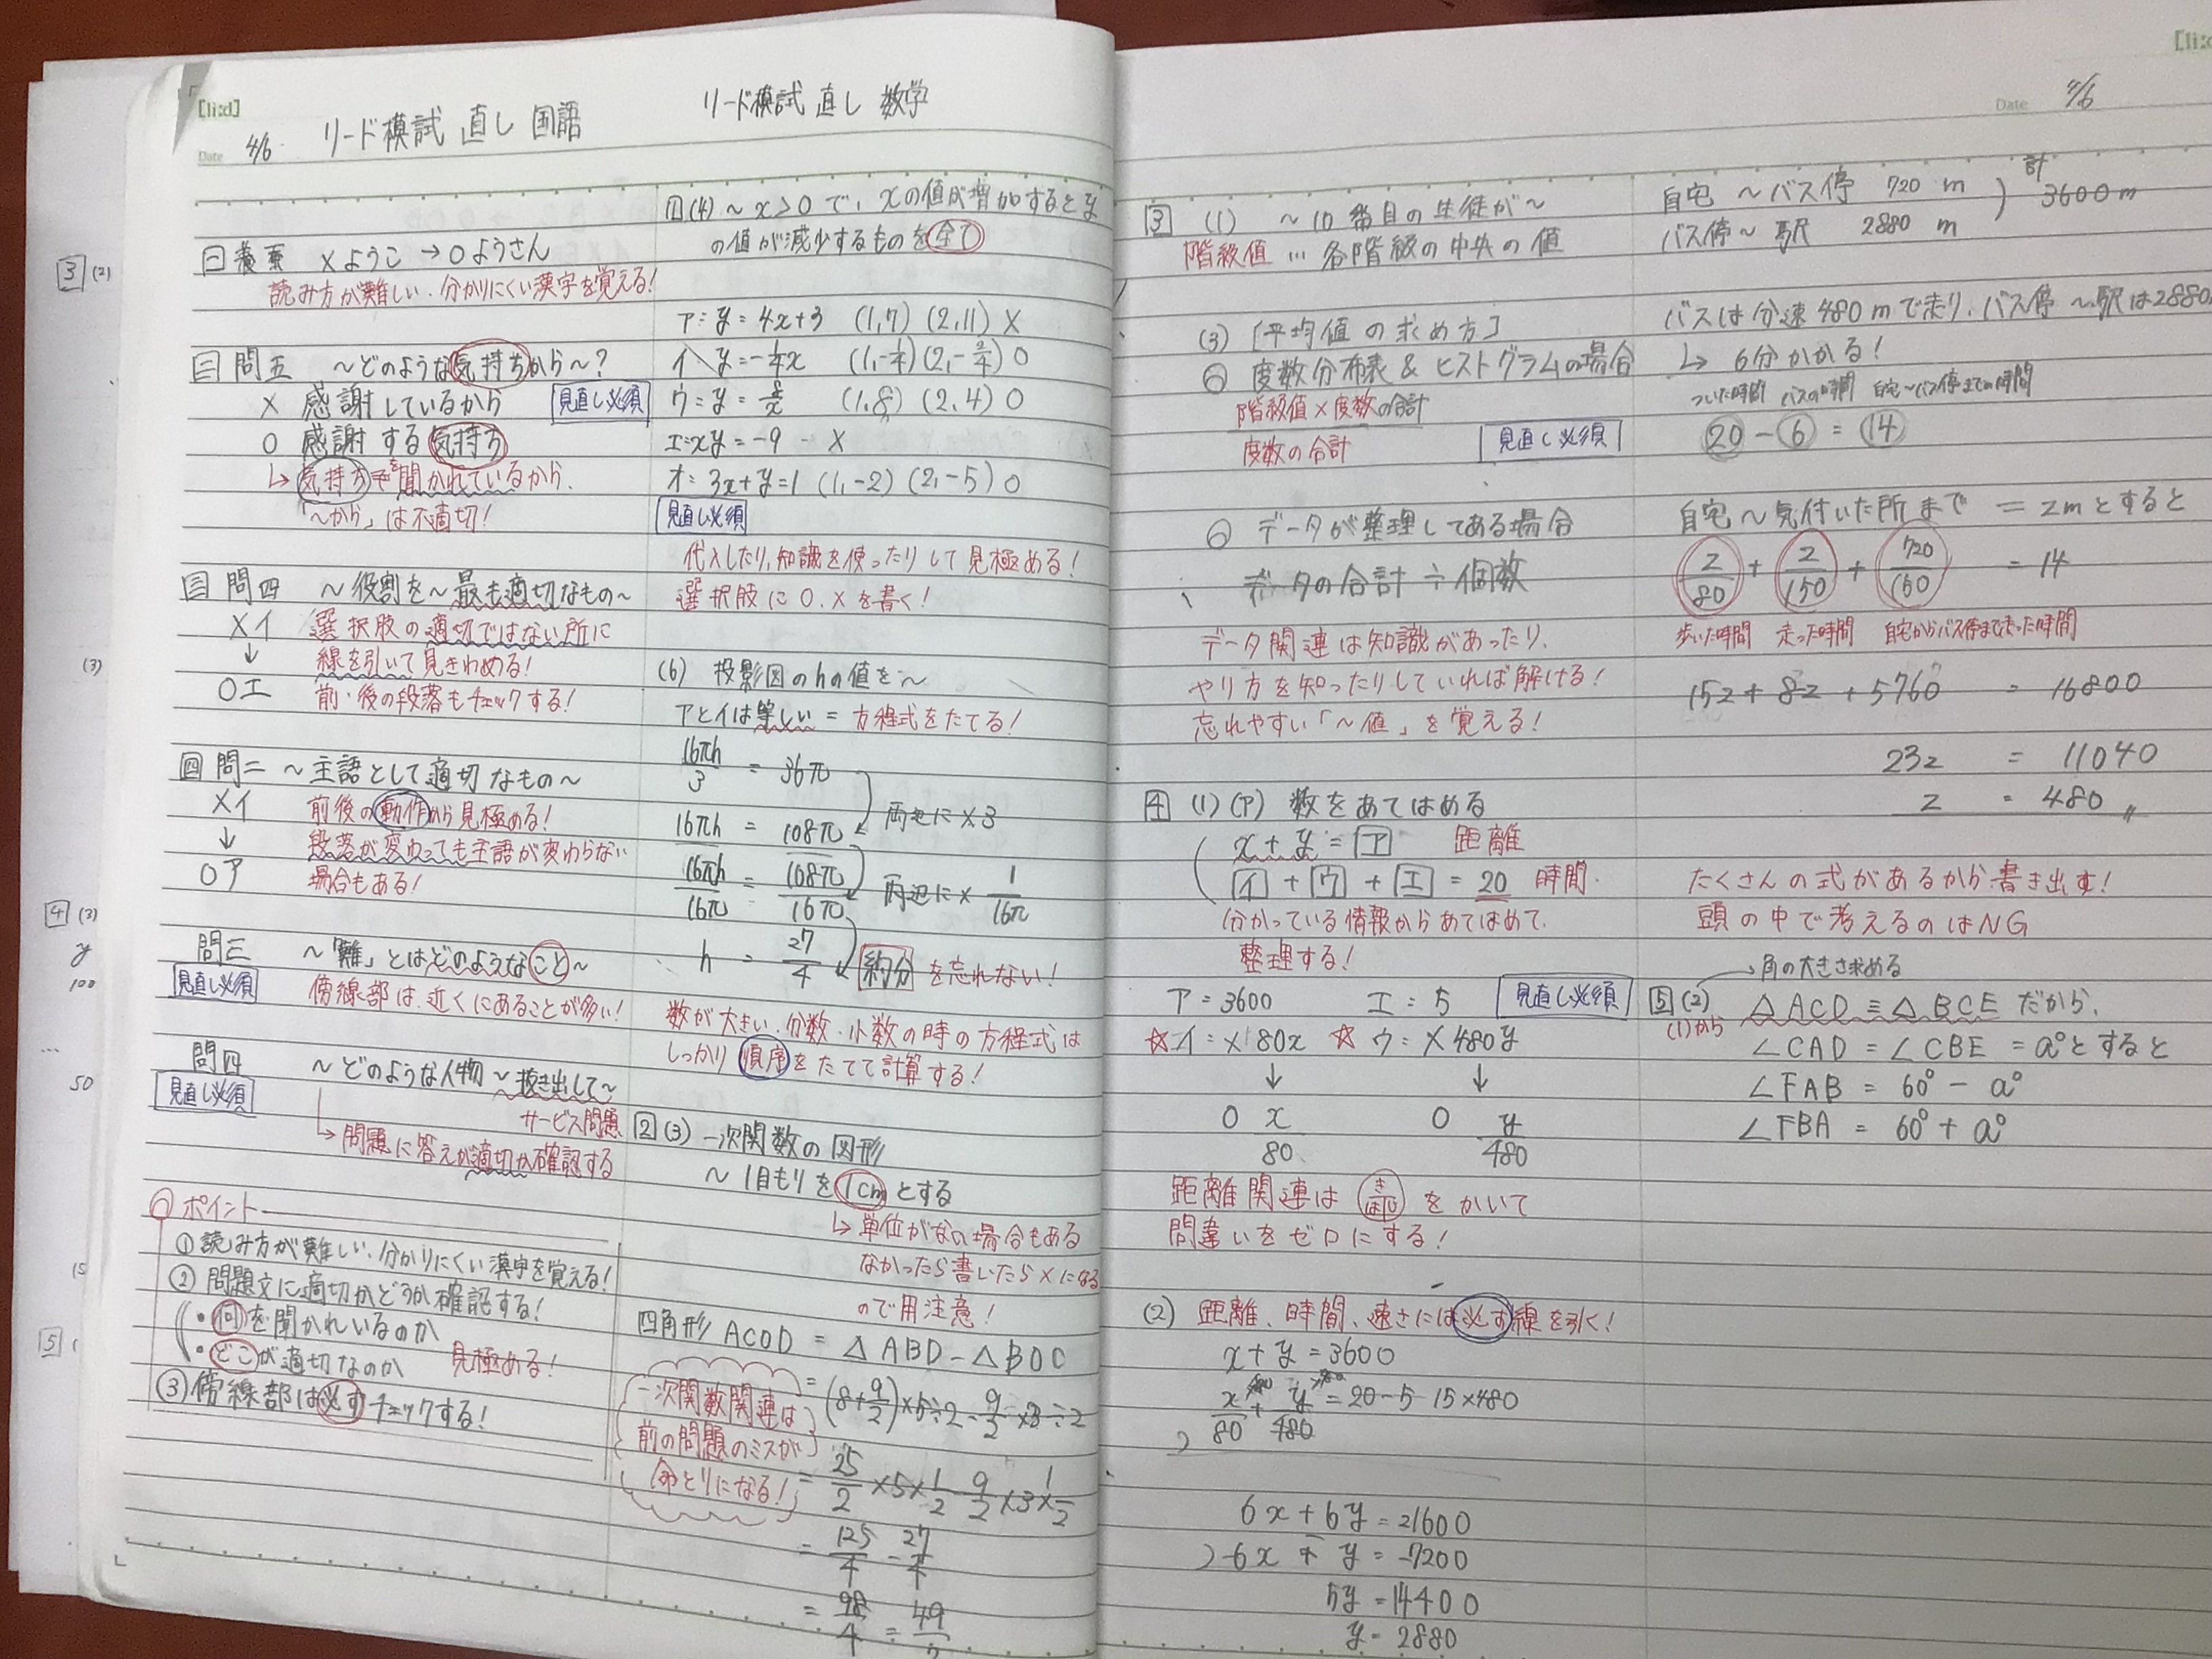 [li:d]
Date 4/6
リード模試 直し 国語
リード模試 直し 数学
一 養蚕 ×ようこ → ○ようさん
読み方が難しい、分かりにくい漢字を覚える！
二 問五 ～どのような気持ちから～？
× 感謝しているから 見直し必須
○ 感謝する気持ち
↳ 気持ちを聞かれているから、
「～から」は不適切！
三 問四 ～役割を～最も適切なもの～
×イ 選択肢の適切ではない所に
↓ 線を引いて見きわめる！
○エ 前・後の段落もチェックする！
四 問二 ～主語として適切なもの～
×イ 前後の動作から見極める！
↓ 段落が変わっても主語が変わらない
○ア 場合もある！
問三 ～「難」とはどのようなこと～
見直し必須 傍線部は、近くにあることが多い！
問四 ～どのような人物～抜き出して～
見直し必須 サービス問題
↳ 問題に答えが適切か確認する
ポイント
① 読み方が難しい、分かりにくい漢字を覚える！
② 問題文に適切かどうか確認する！
・何を聞かれいるのか
・どこが適切なのか 見極める！
③ 傍線部は必ずチェックする！
1 (4) ～x＞0で、xの値が増加するとy
の値が減少するものを全て
ア：y=4x+3 (1,7) (2,11) ×
イ y=-1/4x (1,-1/4)(2,-2/4) ○
ウ：y=8/x (1,8) (2,4) ○
エ：xy=-9 - ×
オ：3x+y=1 (1,-2) (2,-5) ○
見直し必須
代入したり、知識を使ったりして見極める！
選択肢に○、×を書く！
(6) 投影図のhの値を～
アとイは等しい = 方程式をたてる！
16πh/3 = 36π
16πh = 108π 両辺に×3
16πh/16π = 108π/16π 両辺に× 1/16π
h = 27/4 約分を忘れない！
数が大きい、分数・小数の時の方程式は
しっかり順序をたてて計算する！
2 (3) 一次関数の図形
～1目もりを1cmとする
↳ 単位がない場合もある
なかったら書いたら×になる
ので用注意！
四角形ACOD = △ABD - △BOC
= (8+9/2)×5÷2 - 9/2×3÷2
一次関数関連は
前の問題のミスが
命とりになる！
= 25/2 ×5× 1/2 - 9/2 ×3× 1/2
= 125/4 - 27/4
= 98/4 = 49/2
Date 4/6
3 (1) ～10番目の生徒が～
階級値 … 各階級の中央の値
(3) [平均値の求め方]
度数分布表 & ヒストグラムの場合
階級値×度数の合計
度数の合計
見直し必須
データが整理してある場合
データの合計 ÷ 個数
データ関連は知識があったり、
やり方を知ったりしていれば解ける！
忘れやすい「～値」を覚える！
4 (1)(ア) 数をあてはめる
x+y=ア 距離
イ+ウ+エ=20 時間
分かっている情報からあてはめて、
整理する！
ア=3600 エ：5 見直し必須
☆イ：×80x ☆ウ：×480y
↓ ↓
○ x/80 ○ y/480
距離関連は きはじ をかいて
間違いをゼロにする！
(2) 距離、時間、速さには必ず線を引く！
x+y=3600
x/80 + y/480 = 20-5 15×480
6x+6y=21600
)-6x+y=-7200
5y=14400
y=2880
自宅～バス停 720m
バス停～駅 2880m
計 3600m
バスは分速480mで走り、バス停～駅は2880
↳ 6分かかる！
ついた時間 バスの時間 自宅～バス停までの時間
20-6=14
自宅～気付いた所まで = zmとすると
z/80 + z/150 + 720/160 = 14
歩いた時間 走った時間 自宅からバス停まで走った時間
15z+8z+5760 = 16800
23z = 11040
z = 480
たくさんの式があるから書き出す！
頭の中で考えるのはNG
→角の大きさ求める
5 (2) △ACD≡△BCEだから、
(1)から
∠CAD=∠CBE=a°とすると
∠FAB = 60°-a°
∠FBA = 60°+a°
3 (2)
(3)
4 (3)
y
100
…
50
5